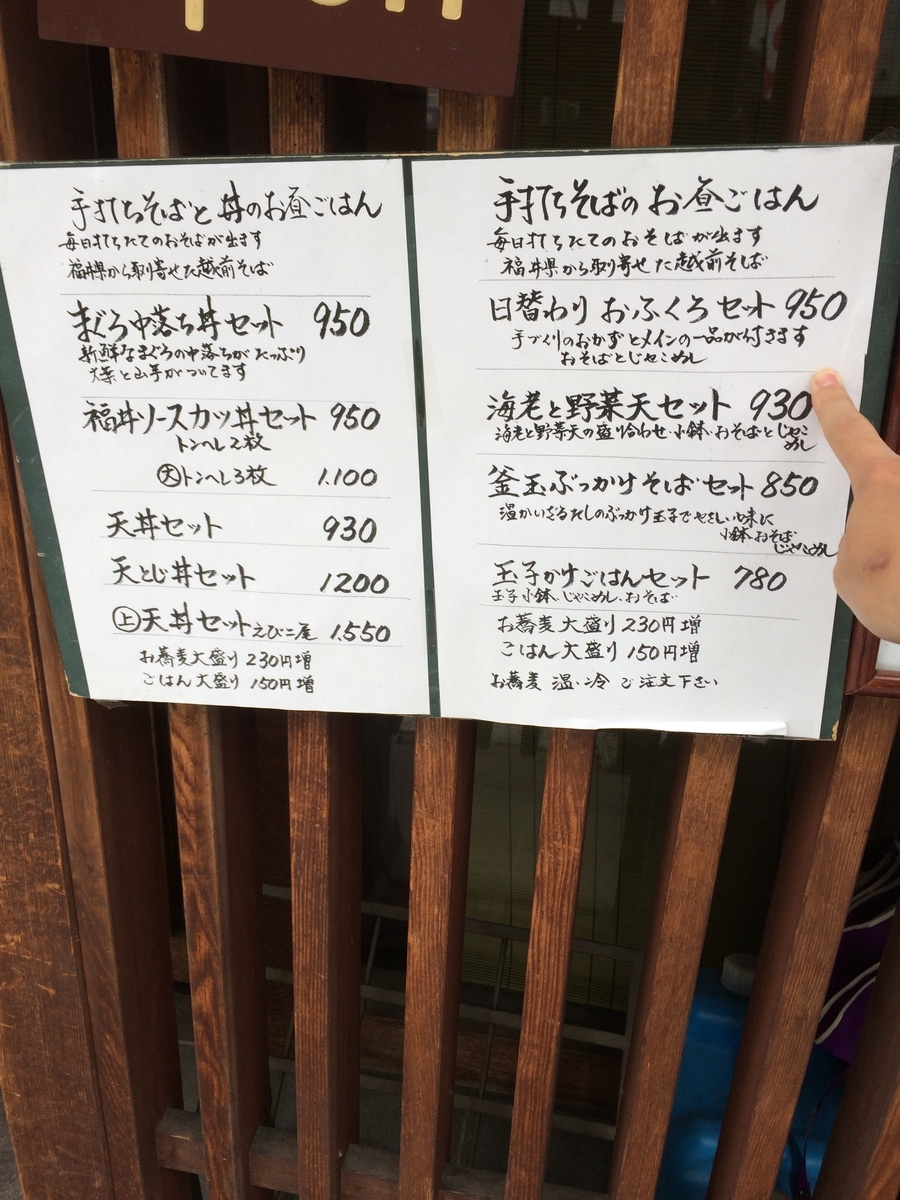 手打ちそばと丼のお昼ごはん
毎日打ちたてのおそばが出ます
福井県から取り寄せた越前そば
まぐろ中落ち丼セット 950
新鮮なまぐろの中落ちがたっぷり
大葉と山芋がついてます
福井ソースカツ丼セット 950
トンヘレ2枚
大 トンヘレ3枚 1.100
天丼セット 930
天とじ丼セット 1200
上 天丼セット えび二尾 1.550
お蕎麦大盛り 230円増
ごはん大盛り 150円増
手打ちそばのお昼ごはん
毎日打ちたてのおそばが出ます
福井県から取り寄せた越前そば
日替わりおふくろセット 950
手づくりのおかずとメインの一品が付きます
おそばとじゃこめし
海老と野菜天セット 930
海老と野菜天の盛り合わせ・小鉢・おそばとじゃこ
めし
釜玉ぶっかけそばセット 850
温かいざるだしのぶっかけ玉子でやさしい味に
小鉢・おそば
じゃこめし
玉子かけごはんセット 780
玉子小鉢・じゃこめし・おそば
お蕎麦大盛り 230円増
ごはん大盛り 150円増
お蕎麦 温・冷 ご注文下さい